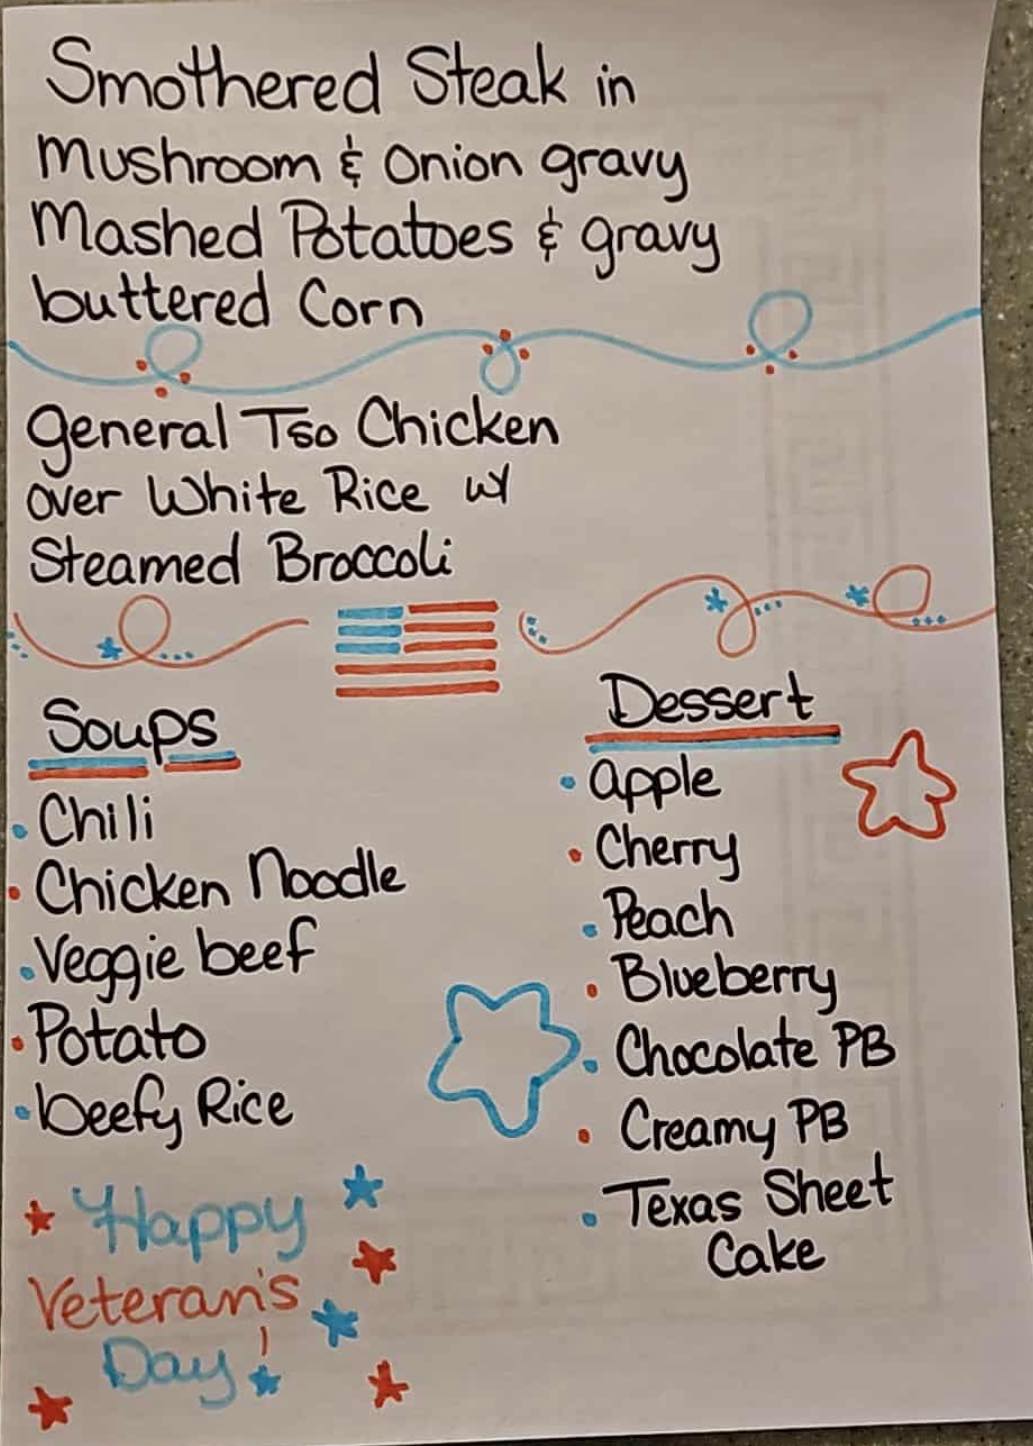 Smothered Steak in
Mushroom & Onion gravy
Mashed Potatoes & gravy
buttered Corn
General Tso Chicken
over White Rice w/
Steamed Broccoli
Soups
• Chili
• Chicken Noodle
• Veggie beef
• Potato
• beefy Rice
Dessert
• apple
• Cherry
• Peach
• Blueberry
• Chocolate PB
• Creamy PB
• Texas Sheet
Cake
Happy
Veteran's
Day!